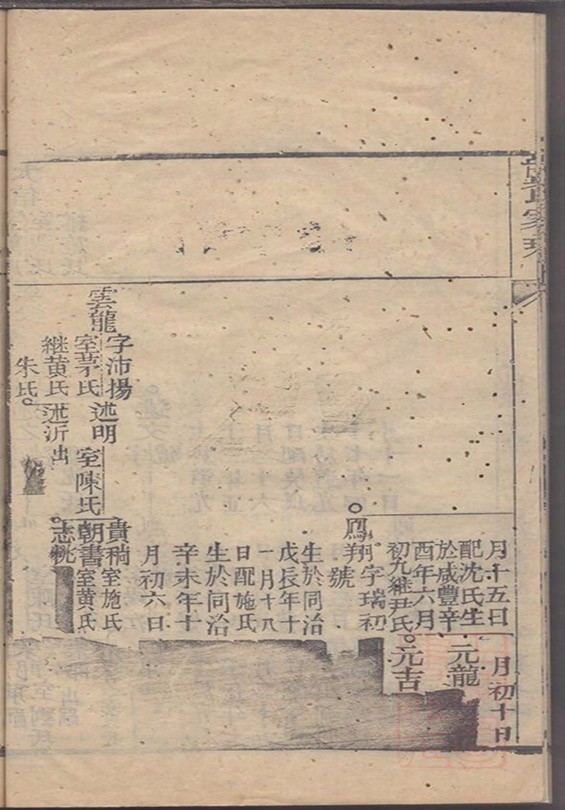 月十五日
配沈氏生
於咸豐辛
酉年六月
初九継尹氏。
月初十日
元龍
元吉
鳳翔。字瑞初
號
生於同治
戊辰年十
一月十八
日配施氏
生於同治
辛未年十
月初六日
雲龍
字沛揚
室茅氏
継黄氏
朱氏。
述明
室陳氏
述沂出
貴稍室施氏
朝書室黄氏
志